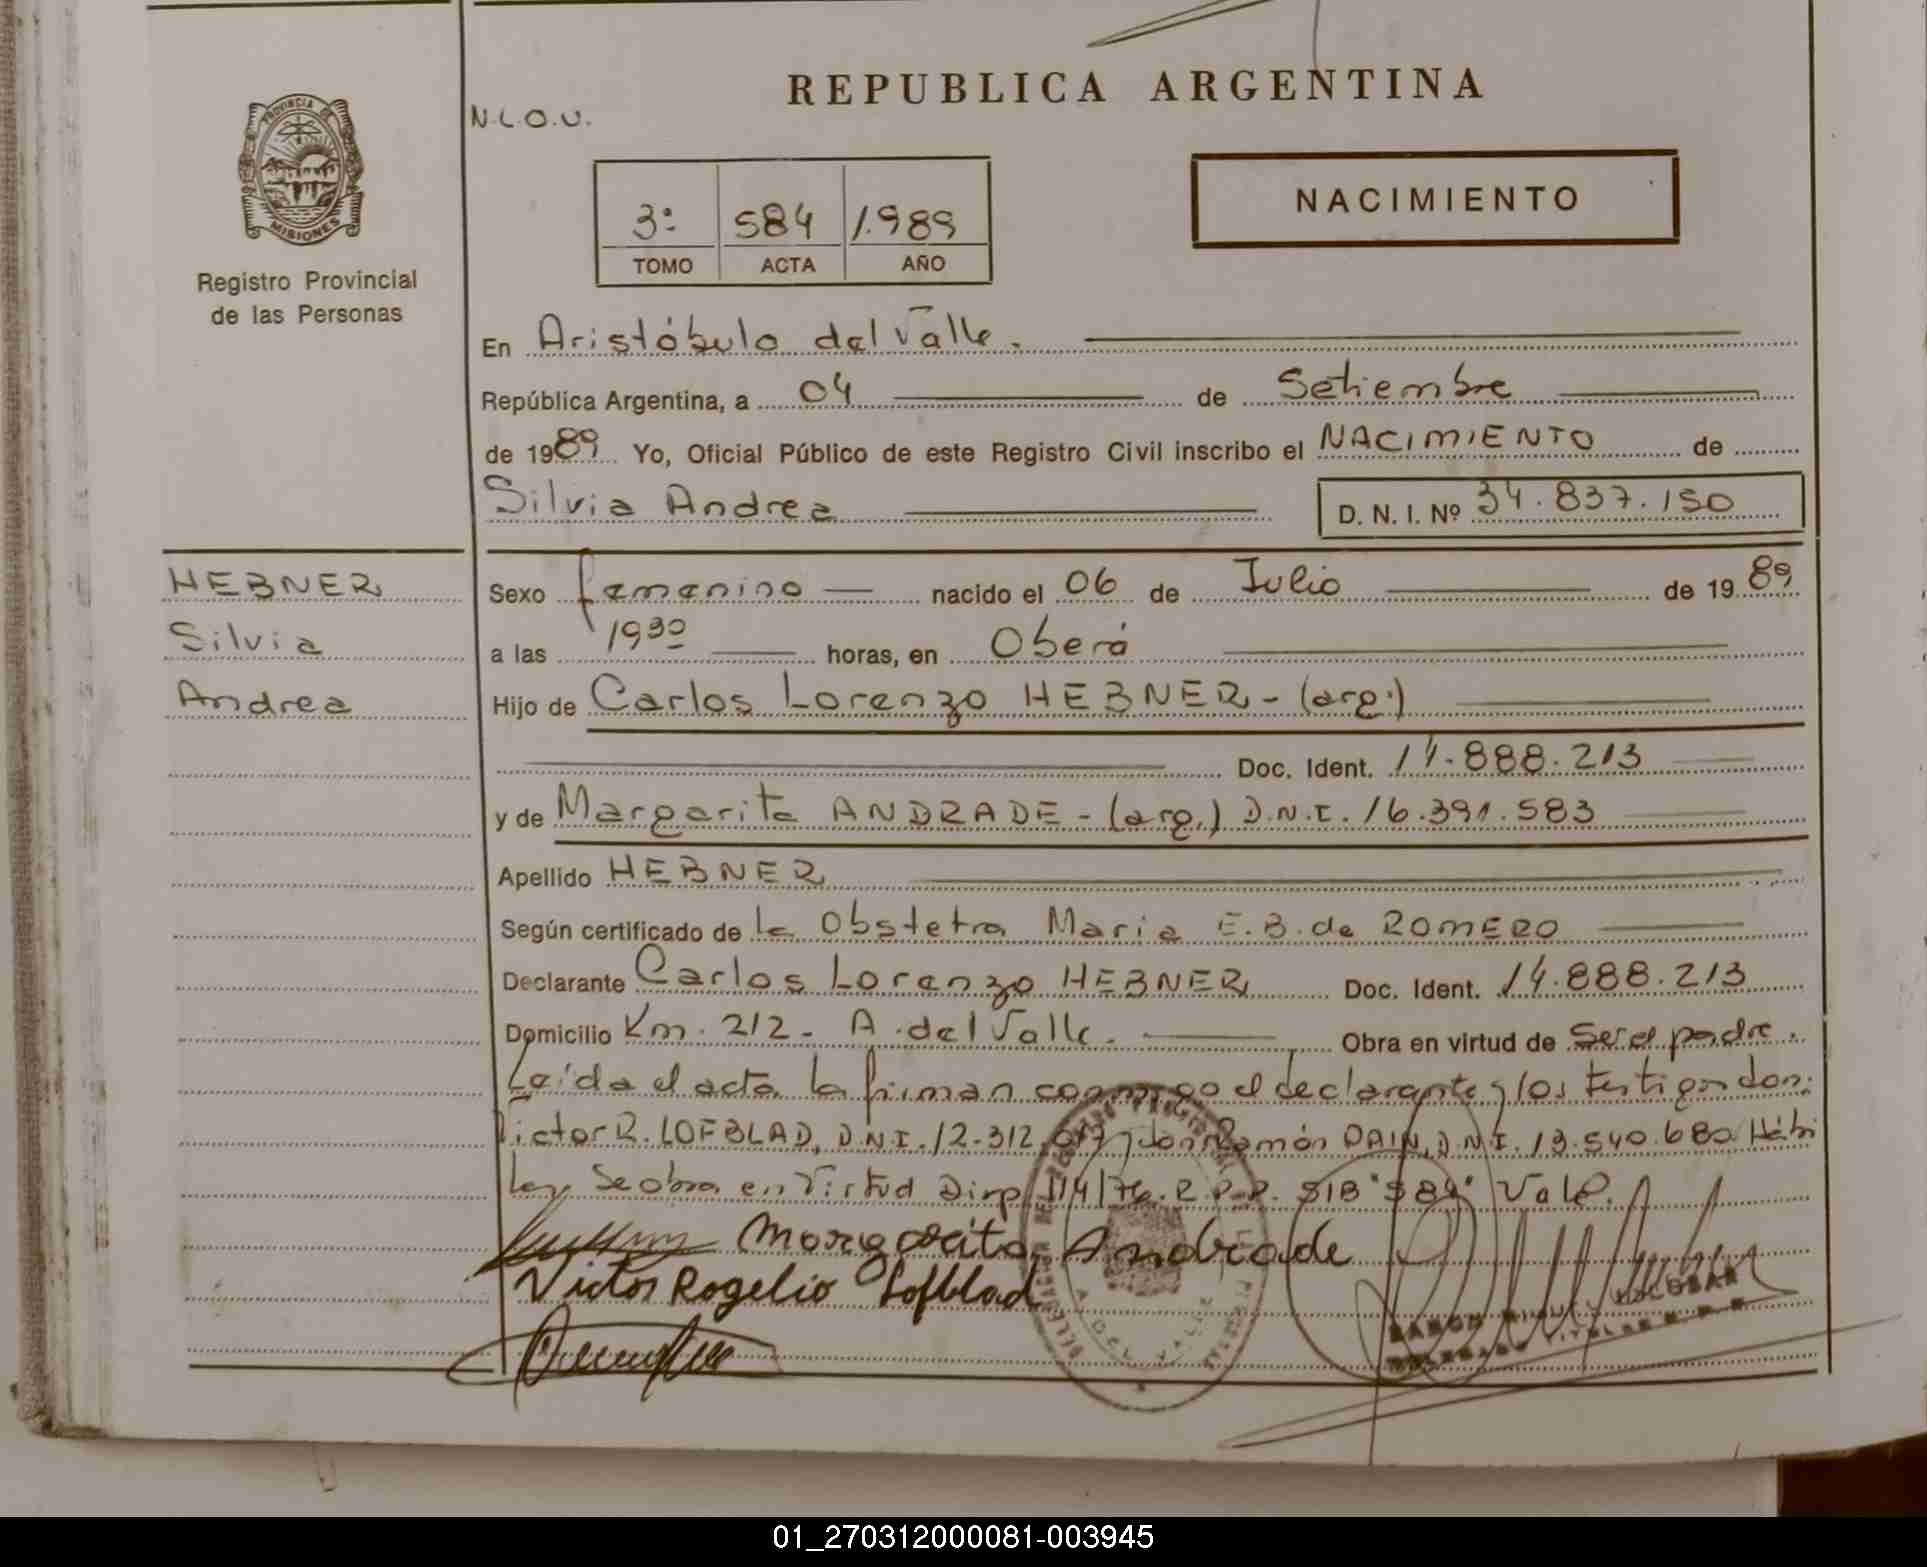 REPUBLICA ARGENTINA
PROVINCIA DE
MISIONES
Registro Provincial
de las Personas
N.L.O.U.
3º 584 1.989
TOMO ACTA AÑO
NACIMIENTO
En Aristóbulo del Valle.
República Argentina, a 04 de Setiembre
de 1989 Yo, Oficial Público de este Registro Civil inscribo el NACIMIENTO de
Silvia Andrea D. N. I. Nº 34.837.150
HEBNER
Silvia
Andrea
Sexo femenino nacido el 06 de Julio de 1989
a las 19³⁰ horas, en Oberá
Hijo de Carlos Lorenzo HEBNER - (arg.)
Doc. Ident. 14.888.213
y de Margarita ANDRADE - (arg.) D.N.I. 16.391.583
Apellido HEBNER
Según certificado de la Obstetra Maria E.B. de ROMERO
Declarante Carlos Lorenzo HEBNER Doc. Ident. 14.888.213
Domicilio Km. 212 - A. del Valle. Obra en virtud de Ser el padre.
Leída el acta la firman conmigo el declarante y los testigos don:
Victor R. LOFBLAD, D.N.I. 12.312. y don Ramón DAIN, D.N.I. 13.540.680 Hábi
les. Se obra en Virtud Disp. 114/76. R.P.P. S/B "584" Vale.
Margarita Andrade
Victor Rogelio Lofblad
RAMON MIGUEL ESCOBAR
DELEGADO TITULAR
A. DEL VALLE
01_270312000081-003945